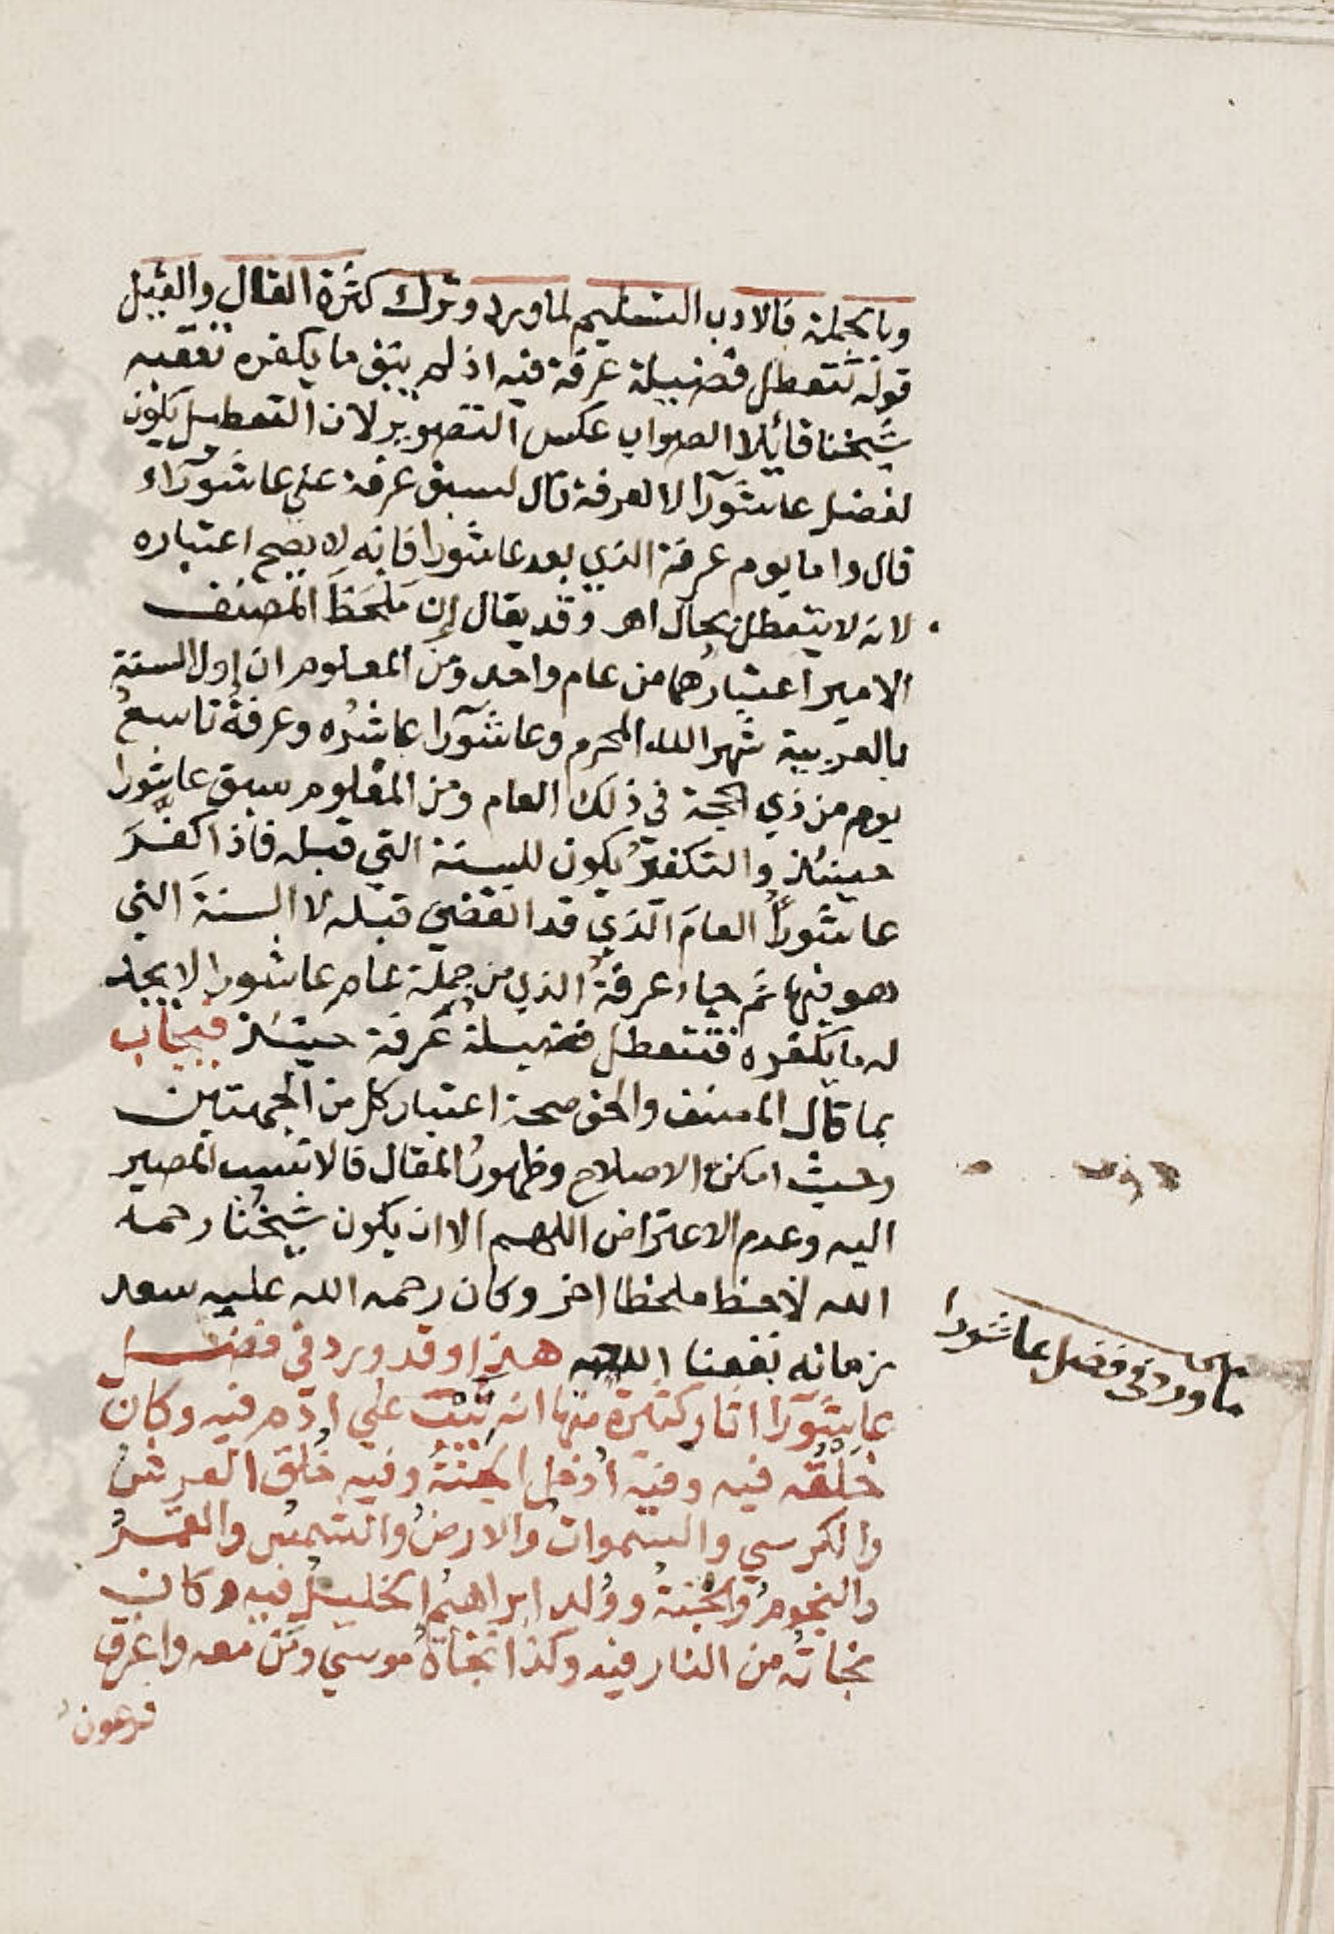 وبالجملة فالادب التسليم لما ورد وترك كثرة القال والقيل
قوله تتعطل فضيلة عرفة فيه اذ لم يبق ما يكفره تعقبه
شيخنا قائلا الصواب عكس التصوير لان التعطيل يكون
لفضل عاشورآ لا لعرفة قال لسبق عرفة على عاشورآء
قال واما يوم عرفة الذي بعد عاشورا فانه لا يصح اعتباره
لانه لا يتعطل بحال اهر وقد يقال إن مَلْحَظَ المصنف
الامير اعتبارُهما من عام واحد ومن المعلوم ان اول السنة
بالعربية شهر الله المحرم وعاشورآ عاشرُه وعرفةُ تاسعُ
يوم من ذي الحجة في ذلك العام ومن المعلوم سبق عاشورا
حينئذ والتكفيرُ يكون للسنة التي قبله فاذا كفَّرَ
عاشوراُ العامَ الذي قد انقضى قبله لا السنةَ التي
هو فيها ثم جاء عرفةُ الذي من جملة عام عاشورا لا يجد
له ما يكفره فتتعطل فضيلة عرفة حينئذ فيجاب
بما قال المصنف والحق صحة اعتبار كل من الجهتين
وحيث امكن الاصلاح وظهورُ المقال فالانسب المصير
اليه وعدم الاعتراض اللهم الا ان يكون شيخُنا رحمه
الله لاحظ ملحظا اخر وكان رحمه الله عليه سعد
زمانه نفعنا الله به هذا وقد ورد في فضل
عاشورآ اثار كثيرة منها انه تيب على ادم فيه وكان
خَلْقُه فيه وفيه اُدخل الجنةُ وفيه خُلق العرشُ
والكرسي والسموات والارضُ والشمسُ والقمرُ
والنجومُ والجنةُ ووُلد ابراهيمُ الخليلُ فيه وكان
نجاتُه من النار فيه وكذا نجاةُ موسي ومن معه واغرق
فرعون
ما ورد في فضل عاشورا